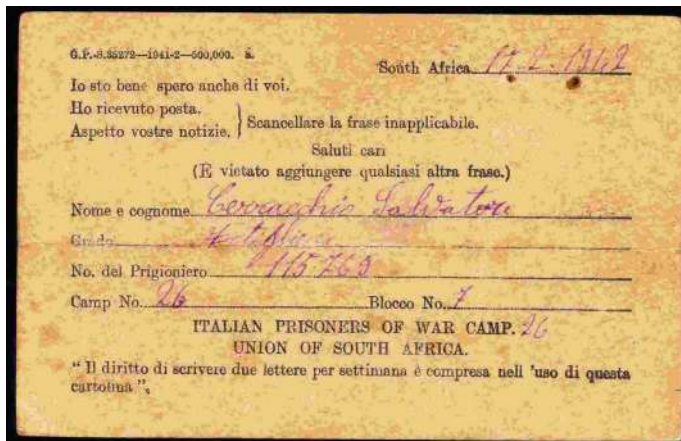 G.P.-S.35272—1941-2—500,000. S.
South Africa 17.2.1942
Io sto bene spero anche di voi.
Ho ricevuto posta.
Aspetto vostre notizie. } Scancellare la frase inapplicabile.
Saluti cari
(E vietato aggiungere qualsiasi altra frase.)
Nome e cognome Salvatore
Grado
No. del Prigioniero 115763
Camp No. 26 Blocco No. 7
ITALIAN PRISONERS OF WAR CAMP. 26
UNION OF SOUTH AFRICA.
“ Il diritto di scrivere due lettere per settimana è compresa nell 'uso di questa
cartolina ”.